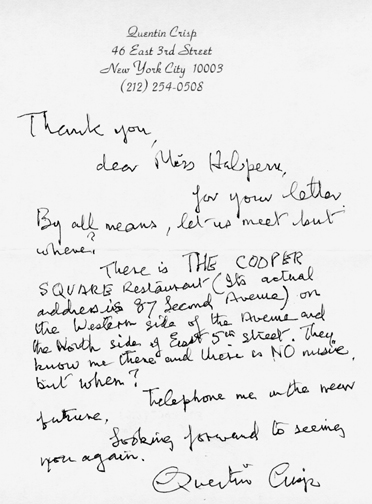 Quentin Crisp
46 East 3rd Street
New York City 10003
(212) 254-0508
Thank you,
dear Miss Halpern,
for your letter.
By all means, let us meet but
where?
There is THE COOPER
SQUARE Restaurant (Its actual
address is 87 Second Avenue) on
the Western side of the Avenue and
the North side of East 5th street. They
know me there and there is NO music,
but when?
Telephone me in the near
future,
Looking forward to seeing
you again.
Quentin Crisp